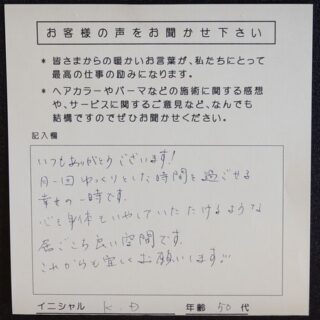 お客様の声をお聞かせ下さい
* 皆さまからの暖かいお言葉が、私たちにとって
最高の仕事の励みになります。
* ヘアカラーやパーマなどの施術に関する感想
や、サービスに関するご意見など、なんでも
結構ですのでぜひお聞かせください。
記入欄
いつもありがとうございます!
月一回ゆっくりとした時間を過ごせる
幸せの一時です。
心も身体もいやしていただけるような
居ごこち良い空間です。
これからも宜しくお願いします!!
イニシャル K.D 年齢 50 代